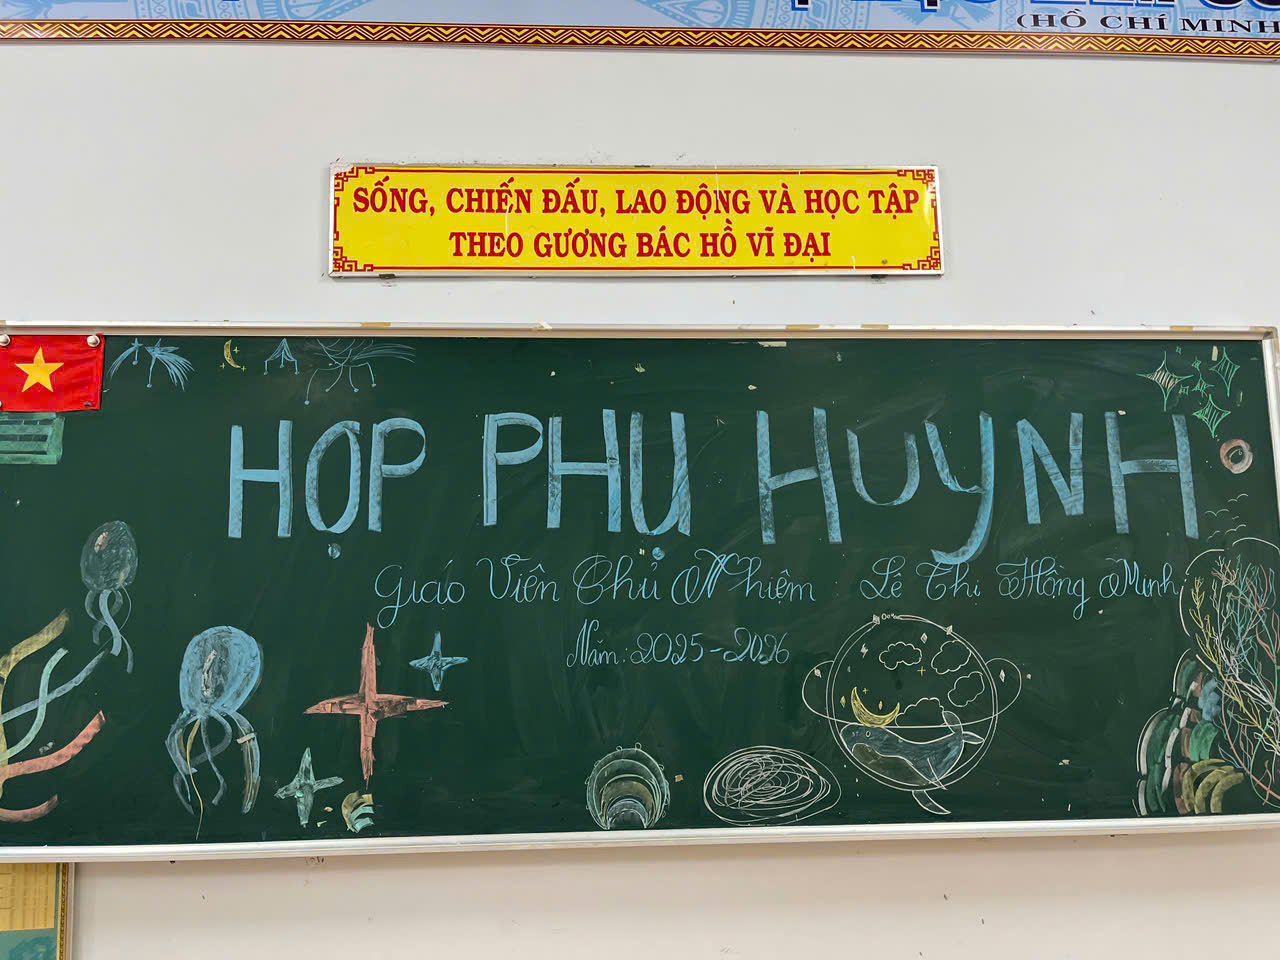 (HỒ CHÍ MINH
SỐNG, CHIẾN ĐẤU, LAO ĐỘNG VÀ HỌC TẬP
THEO GƯƠNG BÁC HỒ VĨ ĐẠI
HỌP PHỤ HUYNH
Giáo Viên Chủ Nhiệm : Lê Thi Hồng Minh
Năm: 2025-2026